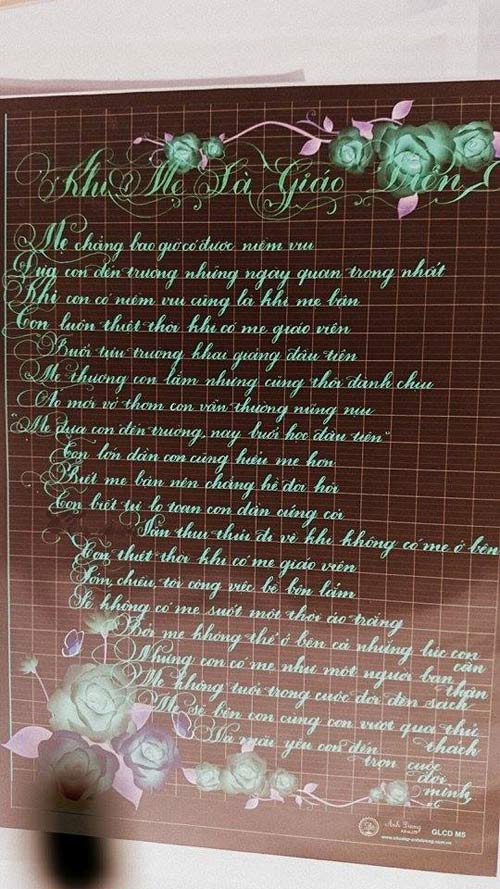 Khi Mẹ Là Giáo Viên
Mẹ chẳng bao giờ có được niềm vui
Đưa con đến trường những ngày quan trọng nhất
Khi con có niềm vui cũng là khi mẹ bận
Con luôn thiệt thòi khi có mẹ giáo viên
Buổi tựu trường khai giảng đầu tiên
Mẹ thương con lắm nhưng cũng thôi đành chịu
Áo mới vở thơm con vẫn thường nũng nịu
"Mẹ đưa con đến trường, nay buổi học đầu tiên"
Con lớn dần con cũng hiểu mẹ hơn
Biết mẹ bận nên chẳng hề đòi hỏi
Con biết tự lo toan con dần cứng cỏi
Vẫn thui thủi đi về khi không có mẹ ở bên
Con thiệt thòi khi có mẹ giáo viên
Sớm, chiều, tối công việc bề bộn lắm
Sẽ không có mẹ suốt một thời áo trắng
Bởi mẹ không thể ở bên cả những lúc con cần
Nhưng con có mẹ như một người bạn thân
Mẹ không tuổi trong cuộc đời đèn sách
Mẹ sẽ bên con cùng con vượt qua thử thách
Và mãi yêu con đến trọn cuộc đời mình
Ánh Dương
GLCD M5